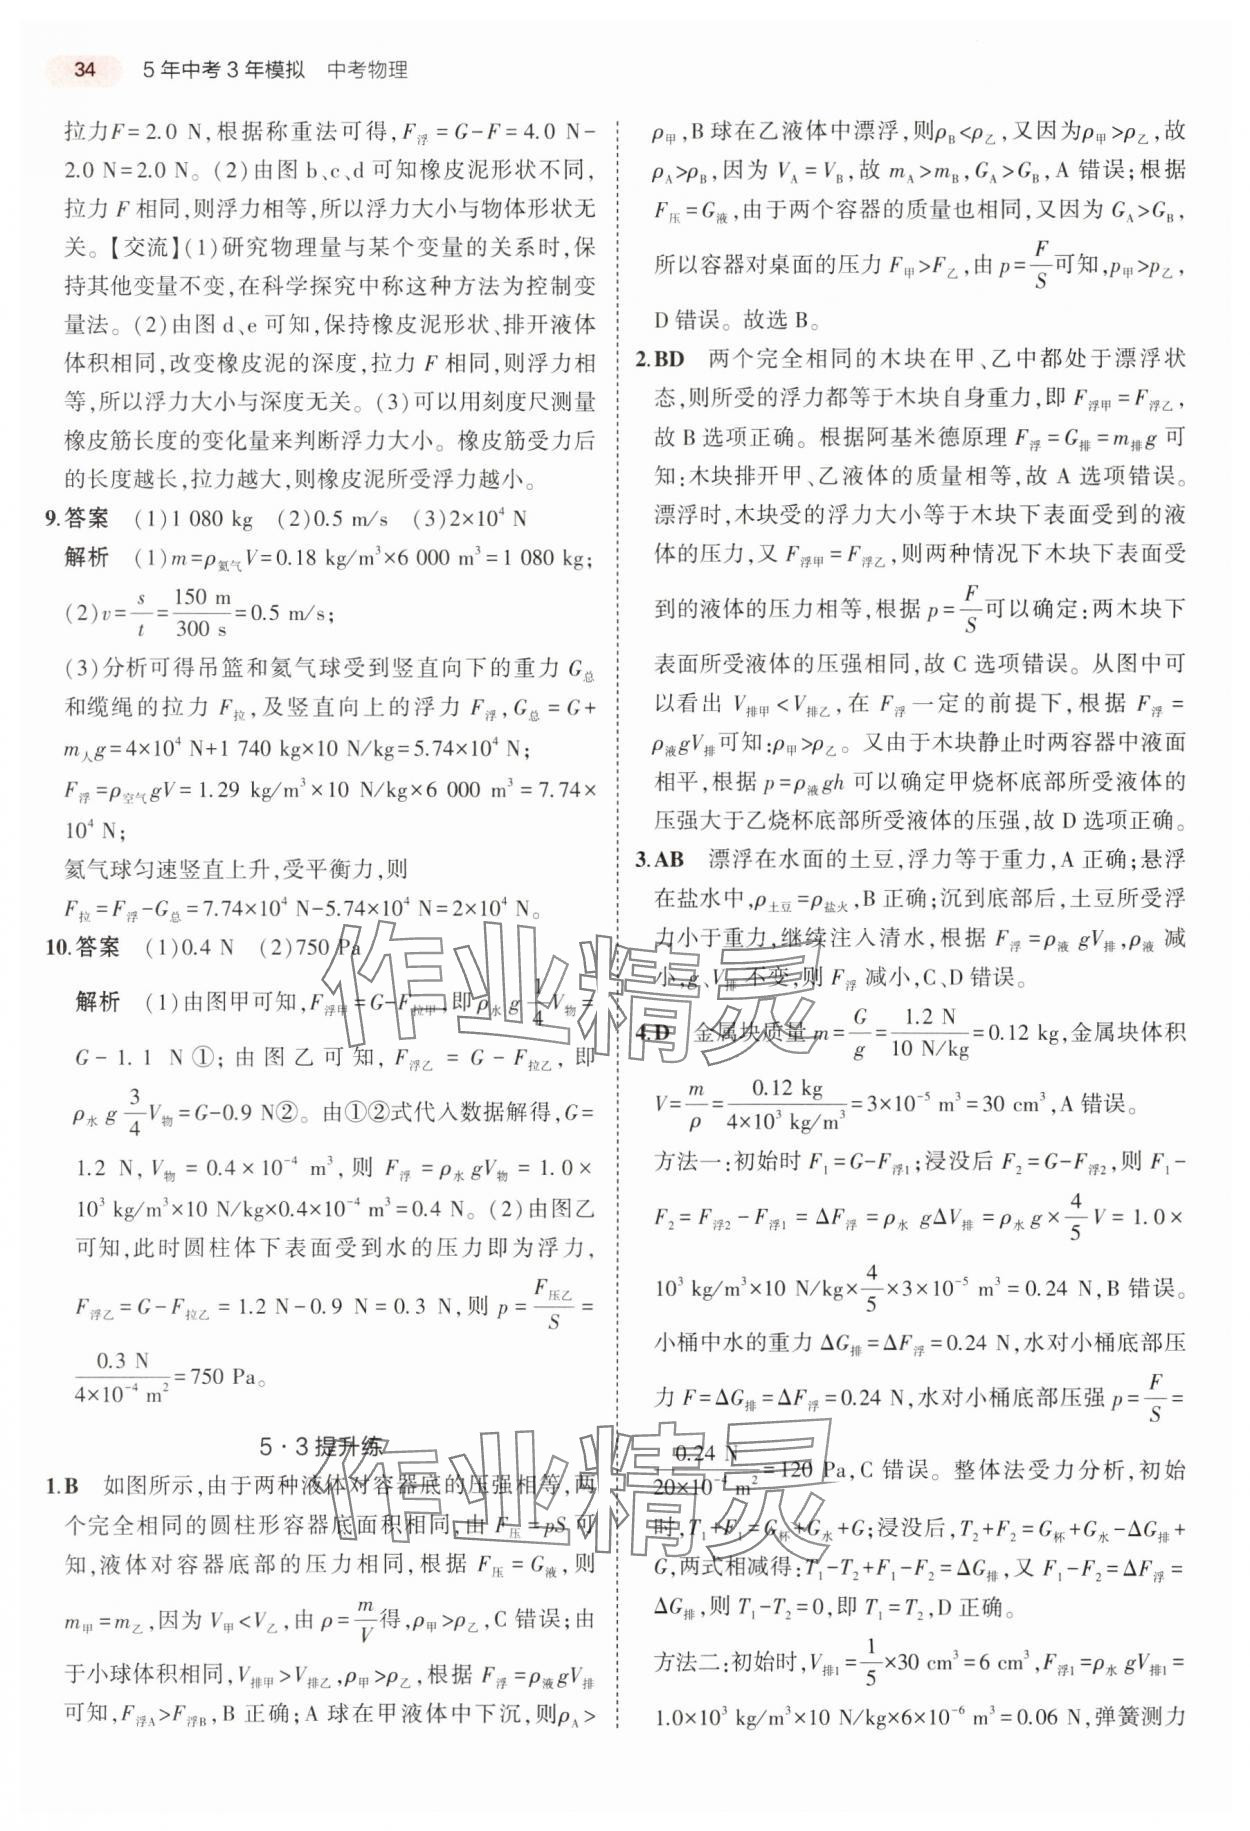 34 5年中考3年模拟 中考物理
拉力F=2.0 N,根据称重法可得,F浮=G-F=4.0 N-
2.0 N=2.0 N。(2)由图 b、c、d 可知橡皮泥形状不同,
拉力 F 相同,则浮力相等,所以浮力大小与物体形状无
关。【交流】(1)研究物理量与某个变量的关系时,保
持其他变量不变,在科学探究中称这种方法为控制变
量法。(2)由图 d、e 可知,保持橡皮泥形状、排开液体
体积相同,改变橡皮泥的深度,拉力 F 相同,则浮力相
等,所以浮力大小与深度无关。(3)可以用刻度尺测量
橡皮筋长度的变化量来判断浮力大小。橡皮筋受力后
的长度越长,拉力越大,则橡皮泥所受浮力越小。
9.答案 (1)1 080 kg (2)0.5 m/s (3)2×10⁴ N
解析 (1)m=ρ氦气V=0.18 kg/m³×6 000 m³=1 080 kg;
(2)v=s/t=150 m/300 s=0.5 m/s;
(3)分析可得吊篮和氦气球受到竖直向下的重力 G总
和缆绳的拉力 F拉,及竖直向上的浮力 F浮,G总=G+
m人g=4×10⁴ N+1 740 kg×10 N/kg=5.74×10⁴ N;
F浮=ρ空气gV=1.29 kg/m³×10 N/kg×6 000 m³=7.74×
10⁴ N;
氦气球匀速竖直上升,受平衡力,则
F拉=F浮-G总=7.74×10⁴ N-5.74×10⁴ N=2×10⁴ N。
10.答案 (1)0.4 N (2)750 Pa
解析 (1)由图甲可知,F浮甲=G-F拉甲,即ρ水g 1/4 V物=
G-1.1 N①;由图乙可知,F浮乙=G-F拉乙,即
ρ水g 3/4 V物=G-0.9 N②。由①②式代入数据解得,G=
1.2 N,V物=0.4×10⁻⁴ m³,则 F浮=ρ水gV物=1.0×
10³ kg/m³×10 N/kg×0.4×10⁻⁴ m³=0.4 N。(2)由图乙
可知,此时圆柱体下表面受到水的压力即为浮力,
F浮乙=G-F拉乙=1.2 N-0.9 N=0.3 N,则 p=F压乙/S=
0.3 N/4×10⁻⁴ m²=750 Pa。
5·3提升练
1.B 如图所示,由于两种液体对容器底的压强相等,两
个完全相同的圆柱形容器底面积相同,由 F压=pS 可
知,液体对容器底部的压力相同,根据 F压=G液,则
m甲=m乙,因为 V甲<V乙,由 ρ=m/V得,ρ甲>ρ乙,C 错误;由
于小球体积相同,V排甲>V排乙,ρ甲>ρ乙,根据 F浮=ρ液gV排
可知,F浮A>F浮B,B 正确;A 球在甲液体中下沉,则ρA>
ρ甲,B球在乙液体中漂浮,则ρB<ρ乙,又因为ρ甲>ρ乙,故
ρA>ρB,因为 VA=VB,故 mA>mB,GA>GB,A 错误;根据
F压=G液,由于两个容器的质量也相同,又因为 GA>GB,
所以容器对桌面的压力 F甲>F乙,由 p=F/S可知,p甲>p乙,
D 错误。故选 B。
2.BD 两个完全相同的木块在甲、乙中都处于漂浮状
态,则所受的浮力都等于木块自身重力,即 F浮甲=F浮乙,
故 B 选项正确。根据阿基米德原理 F浮=G排=m排g 可
知:木块排开甲、乙液体的质量相等,故 A 选项错误。
漂浮时,木块受的浮力大小等于木块下表面受到的液
体的压力,又 F浮甲=F浮乙,则两种情况下木块下表面受
到的液体的压力相等,根据 p=F/S可以确定:两木块下
表面所受液体的压强相同,故 C 选项错误。从图中可
以看出 V排甲<V排乙,在 F浮一定的前提下,根据 F浮=
ρ液gV排可知:ρ甲>ρ乙。又由于木块静止时两容器中液面
相平,根据 p=ρ液gh 可以确定甲烧杯底部所受液体的
压强大于乙烧杯底部所受液体的压强,故 D 选项正确。
3.AB 漂浮在水面的土豆,浮力等于重力,A 正确;悬浮
在盐水中,ρ土豆=ρ盐水,B 正确;沉到底部后,土豆所受浮
力小于重力,继续注入清水,根据 F浮=ρ液gV排,ρ液减
小,g、V排不变,则 F浮减小,C、D 错误。
4.D 金属块质量 m=G/g=1.2 N/10 N/kg=0.12 kg,金属块体积
V=m/ρ=0.12 kg/4×10³ kg/m³=3×10⁻⁵ m³=30 cm³,A 错误。
方法一:初始时 F₁=G-F浮1;浸没后 F₂=G-F浮2,则 F₁-
F₂=F浮2-F浮1=ΔF浮=ρ水gΔV排=ρ水g×4/5V=1.0×
10³ kg/m³×10 N/kg×4/5×3×10⁻⁵ m³=0.24 N,B 错误。
小桶中水的重力 ΔG排=ΔF浮=0.24 N,水对小桶底部压
力 F=ΔG排=ΔF浮=0.24 N,水对小桶底部压强 p=F/S=
0.24 N/20×10⁻⁴ m²=120 Pa,C 错误。整体法受力分析,初始
时,T₁+F₁=G杯+G水+G;浸没后,T₂+F₂=G杯+G水-ΔG排+
G,两式相减得:T₁-T₂+F₁-F₂=ΔG排,又 F₁-F₂=ΔF浮=
ΔG排,则 T₁-T₂=0,即 T₁=T₂,D 正确。
方法二:初始时,V排1=1/5×30 cm³=6 cm³,F浮1=ρ水gV排1=
1.0×10³ kg/m³×10 N/kg×6×10⁻⁶ m³=0.06 N,弹簧测力
作业精灵
作业精灵